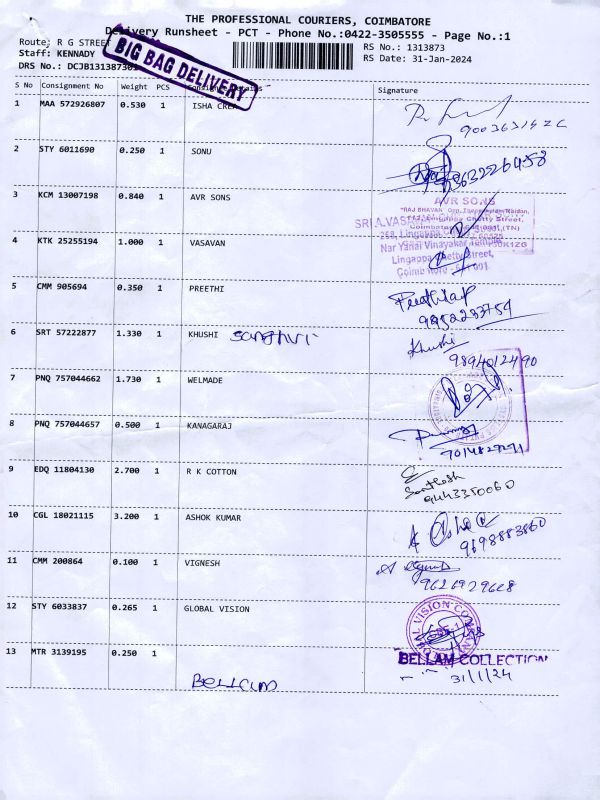 THE PROFESSIONAL COURIERS, COIMBATORE
Delivery Runsheet - PCT - Phone No.:0422-3505555 - Page No.:1
Route: R G STREET
RS No.: 1313873
Staff: KENNADY
RS Date: 31-Jan-2024
DRS No.: DCJB131387301
BIG BAG DELIVERY
S No Consignment No Weight PCS Consignee Details Signature
1 MAA 572926807 0.530 1 ISHA CREA
2 STY 6011690 0.250 1 SONU
3 KCM 13007198 0.840 1 AVR SONS
AVR SONS
4 KTK 25255194 1.000 1 VASAVAN
Nar Yanai Vinayakar Temple
Lingappa Chetty Street,
Coimbatore - 641 001
5 CMM 905694 0.350 1 PREETHI
6 SRT 57222877 1.330 1 KHUSHI Sanghvi
Khushi
9894012490
7 PNQ 757044662 1.730 1 WELMADE
8 PNQ 757044657 0.500 1 KANAGARAJ
9 EDQ 11804130 2.700 1 R K COTTON
Santhosh
9443350060
10 CGL 18021115 3.200 1 ASHOK KUMAR
9698883860
11 CMM 200864 0.100 1 VIGNESH
12 STY 6033837 0.265 1 GLOBAL VISION
13 MTR 3139195 0.250 1
BELLAM COLLECTION
31/1/24
Bellam